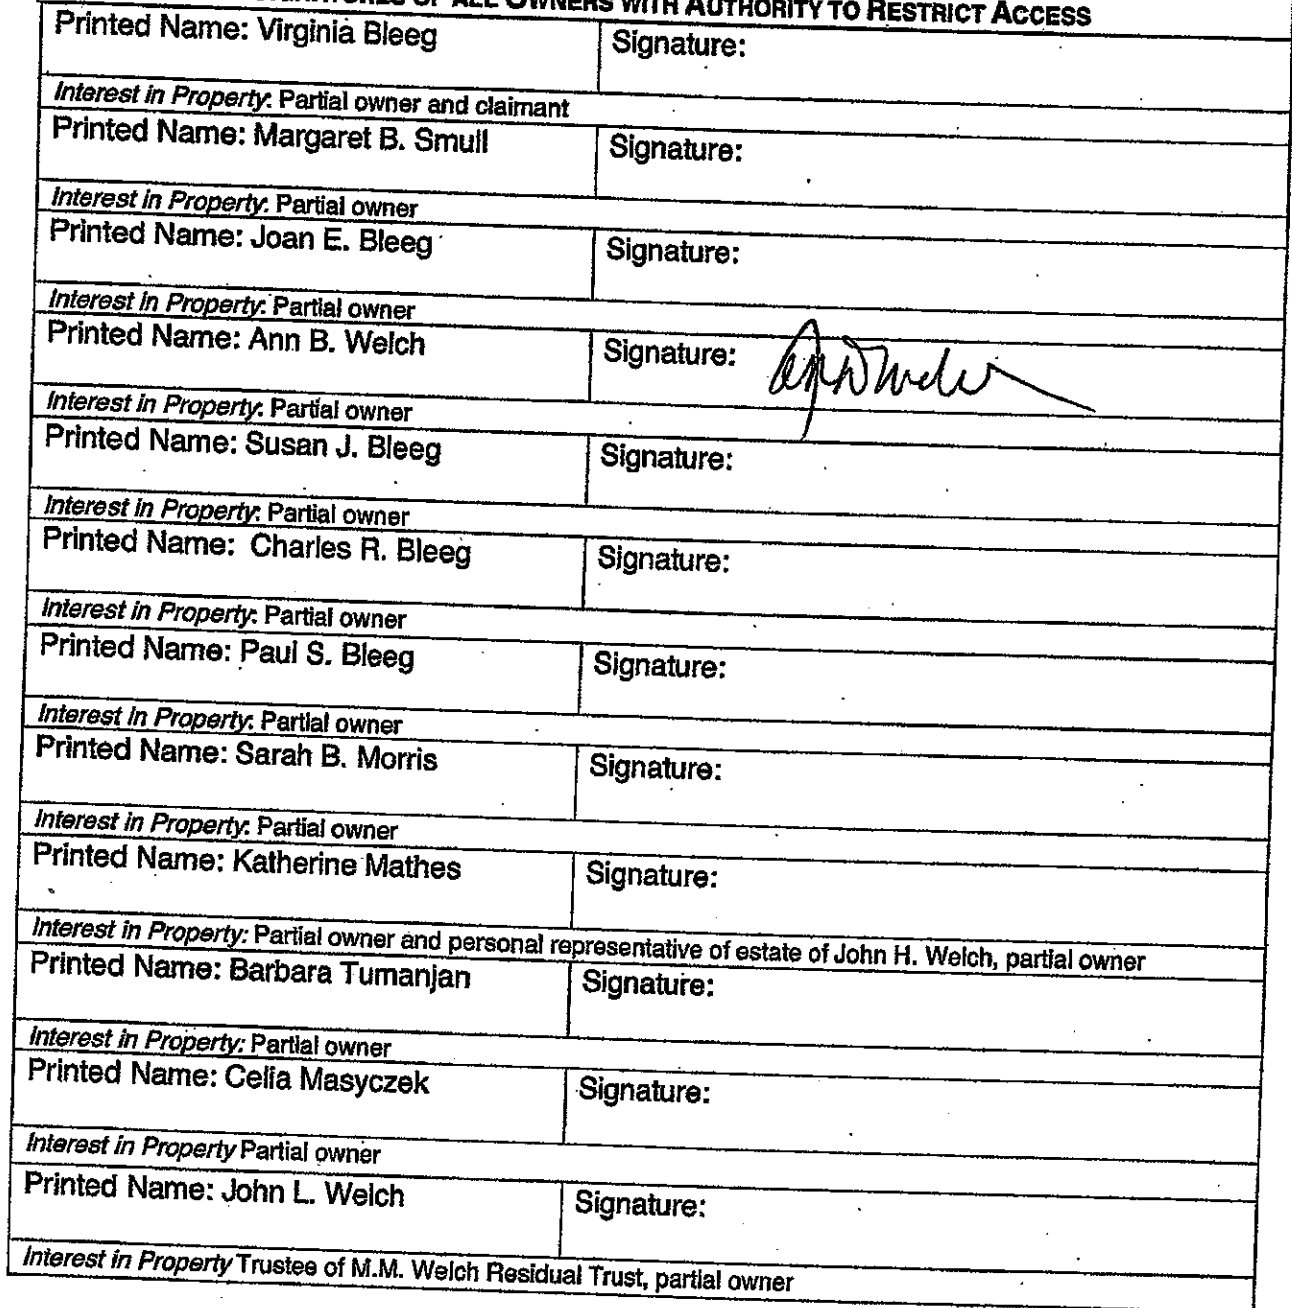 OF ALL OWNERS WITH AUTHORITY TO RESTRICT ACCESS
Printed Name: Virginia Bleeg Signature:
Interest in Property: Partial owner and claimant
Printed Name: Margaret B. Smull Signature:
Interest in Property: Partial owner
Printed Name: Joan E. Bleeg Signature:
Interest in Property: Partial owner
Printed Name: Ann B. Welch Signature:
Interest in Property: Partial owner
Printed Name: Susan J. Bleeg Signature:
Interest in Property: Partial owner
Printed Name: Charles R. Bleeg Signature:
Interest in Property: Partial owner
Printed Name: Paul S. Bleeg Signature:
Interest in Property: Partial owner
Printed Name: Sarah B. Morris Signature:
Interest in Property: Partial owner
Printed Name: Katherine Mathes Signature:
Interest in Property: Partial owner and personal representative of estate of John H. Welch, partial owner
Printed Name: Barbara Tumanjan Signature:
Interest in Property: Partial owner
Printed Name: Celia Masyczek Signature:
Interest in Property Partial owner
Printed Name: John L. Welch Signature:
Interest in Property Trustee of M.M. Welch Residual Trust, partial owner